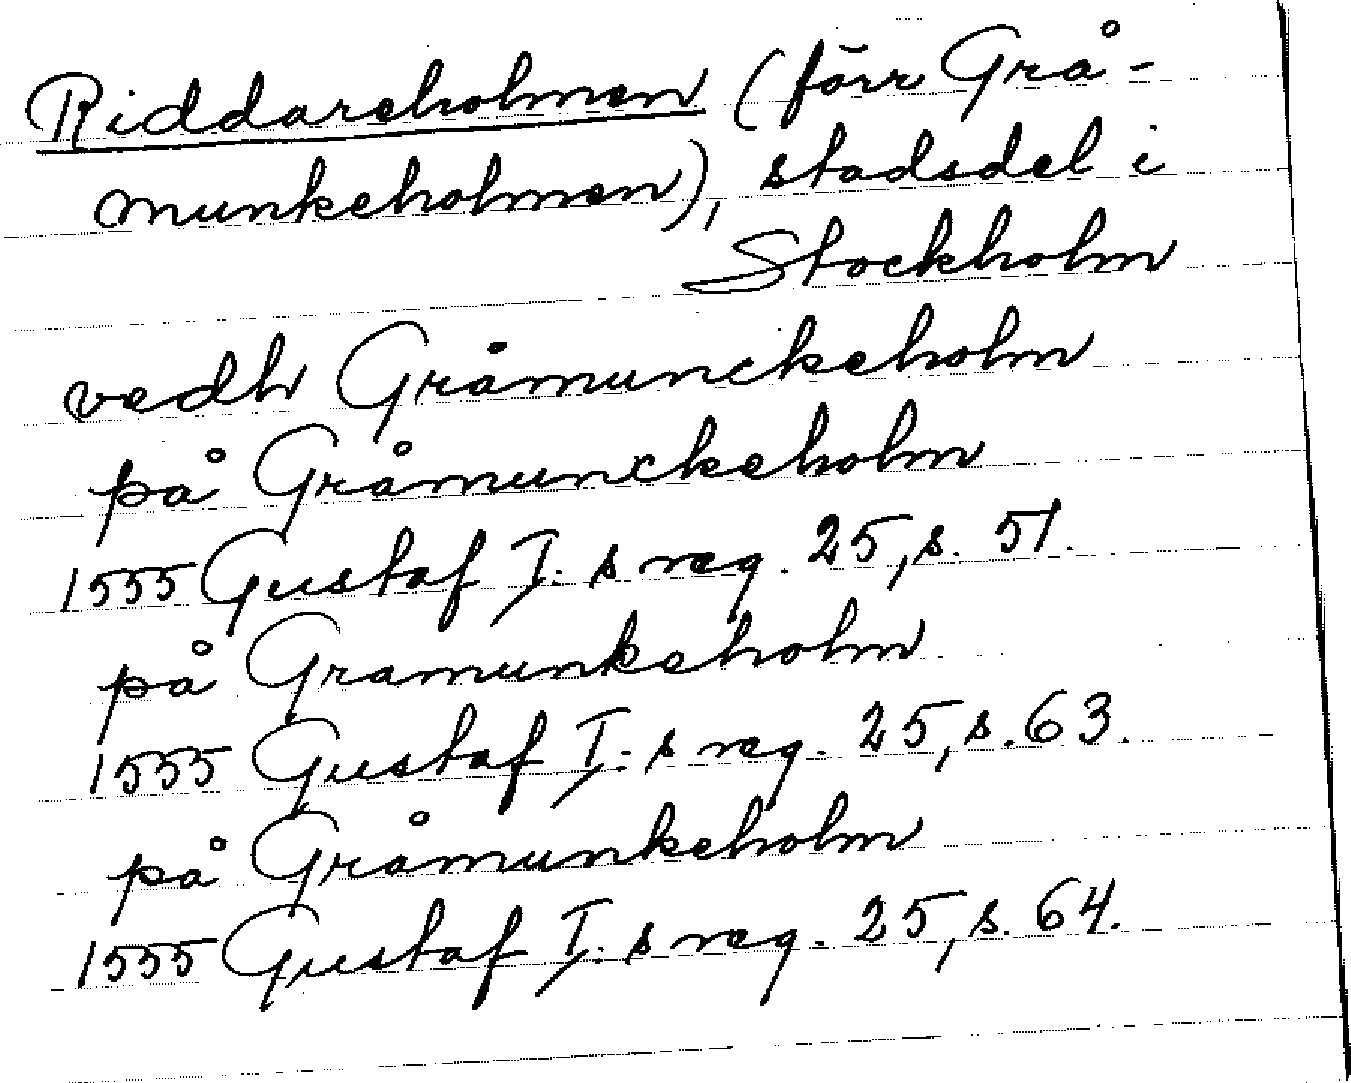 Riddareholmen (förr Grå-
munkeholmen), stadsdel i
Stockholm
vedh Gråmunckeholm
på Gråmunckeholm
1555 Gustaf I:s reg. 25, s. 51.
på Gramunkeholm
1555 Gustaf I:s reg. 25, s. 63.
på Gråmunkeholm
1555 Gustaf I:s reg. 25, s. 64.